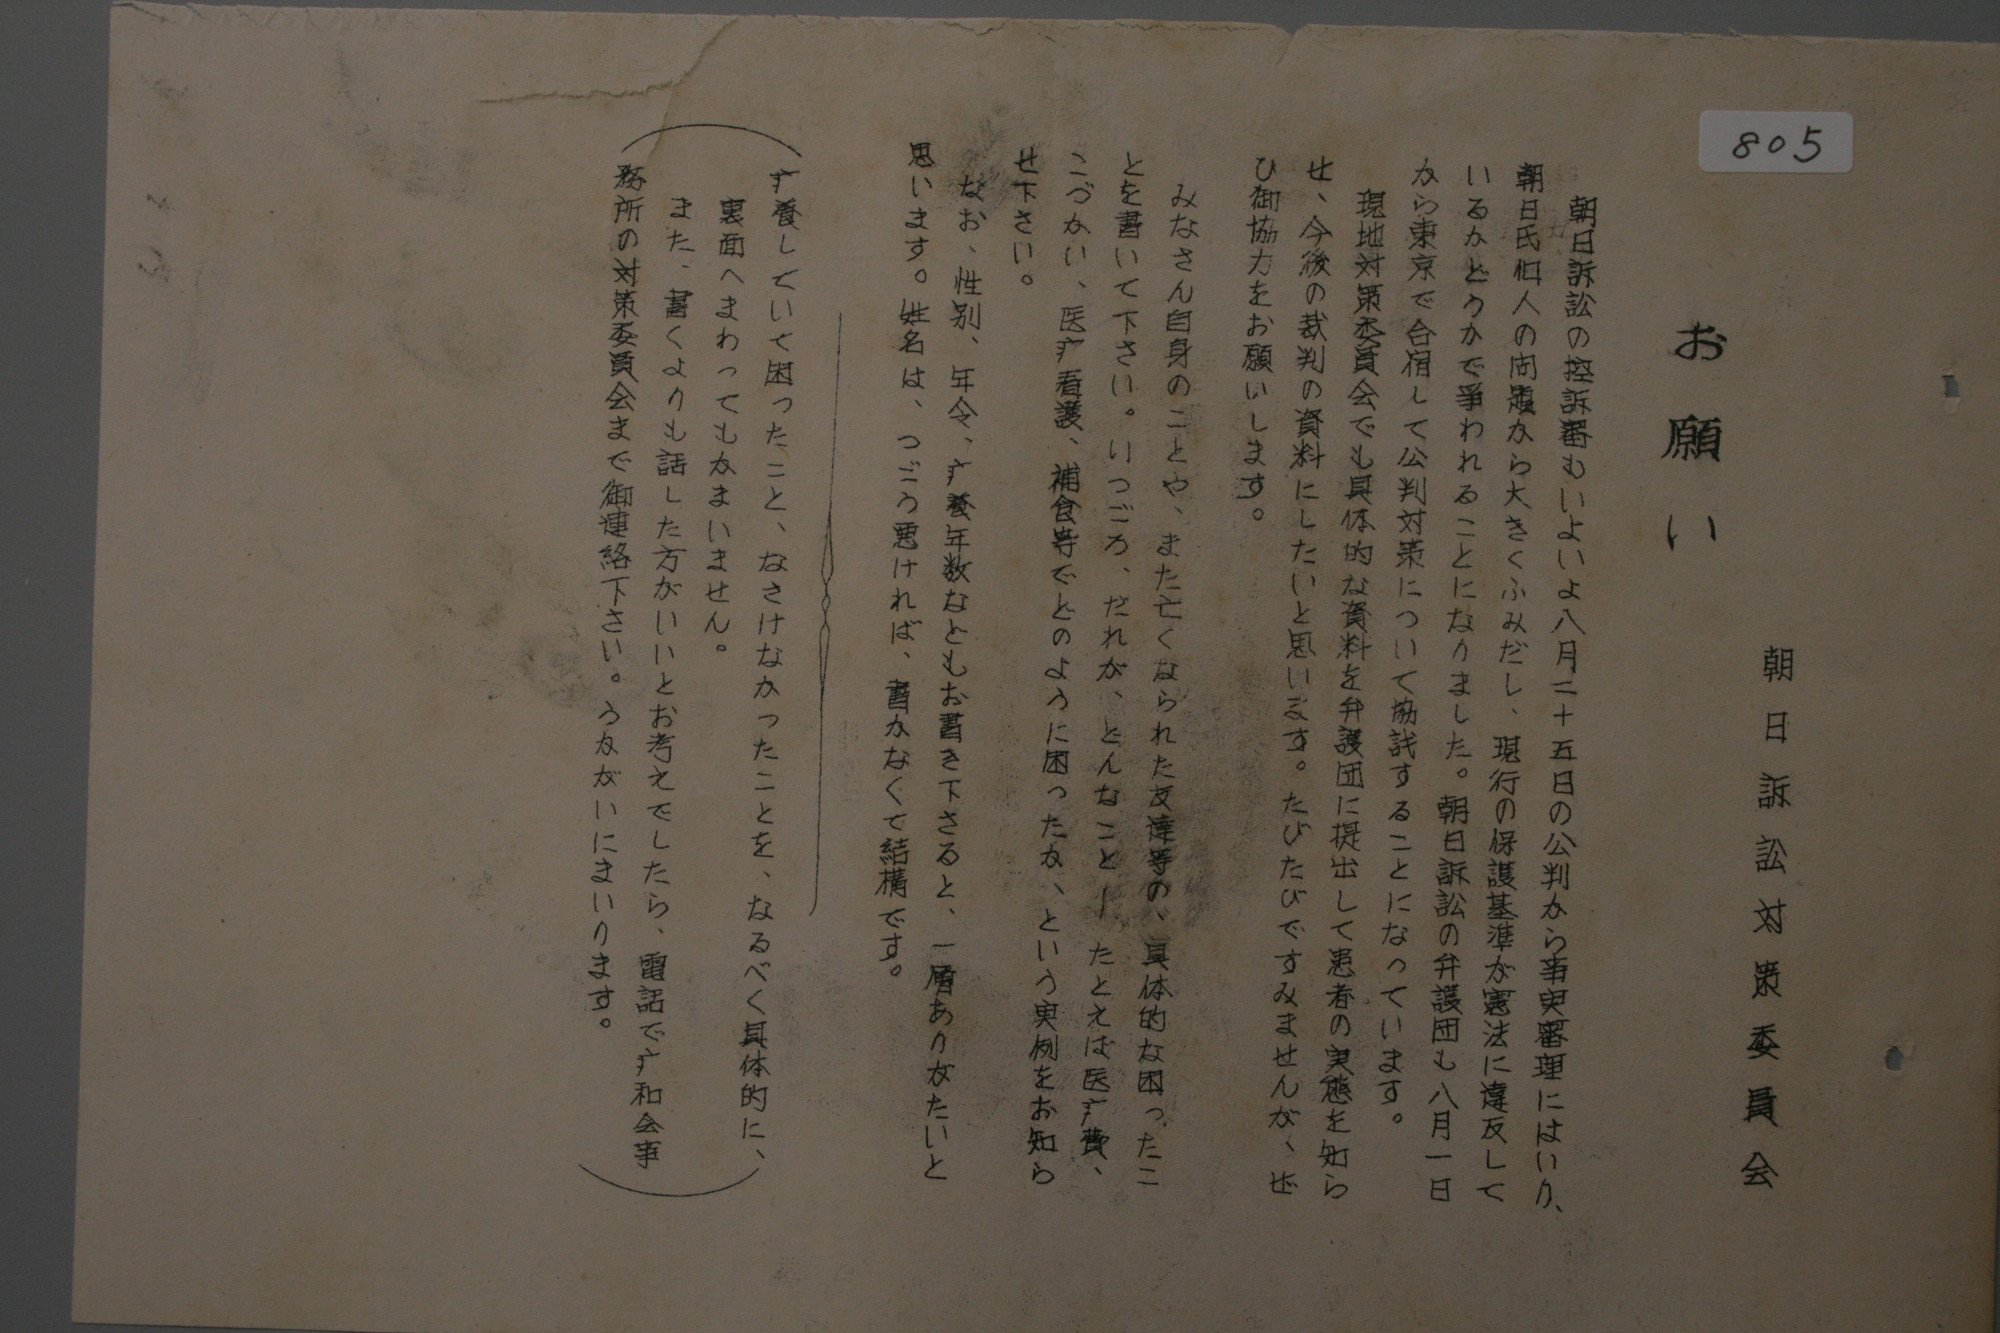 805
朝日訴訟対策委員会
お願い
朝日訴訟の控訴審もいよいよ八月二十五日の公判から事実審理にはいり、
朝日氏個人の問題から大きくふみだし、現行の保護基準が憲法に違反して
いるかどうかで爭われることになりました。朝日訴訟の弁護団も八月一日
から東京で合宿して公判対策について協議することになっています。
現地対策委員会でも具体的な資料を弁護団に提出して患者の実態を知ら
せ、今後の裁判の資料にしたいと思います。たびたびですみませんが、ぜ
ひ御協力をお願いします。
みなさん自身のことや、また亡くなられた友達等の、具体的な困ったこ
とを書いて下さい。いつごろ、だれが、どんなこと― たとえば医疒費、
こづかい、医疒看護、補食等でどのように困ったか、という実例をお知ら
せ下さい。
なお、性別、年令、疒養年数なともお書き下さると、一層ありがたいと
思います。姓名は、つごう悪ければ、書かなくて結構です。
疒養していて困ったこと、なさけなかったことを、なるべく具体的に、
裏面へまわってもかまいません。
また、書くよりも話した方がいいとお考えでしたら、電話で疒和会事
務所の対策委員会まで御連絡下さい。うかがいにまいります。